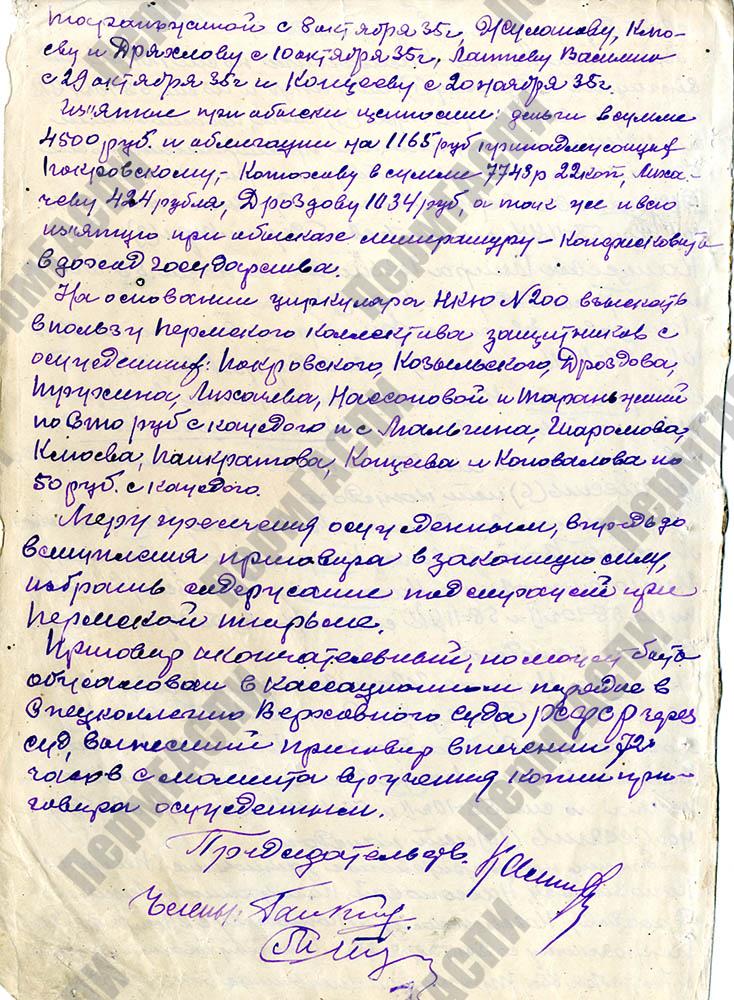 с 8 октября 35г, Жуланову, Клю-
еву и Дряхлову с 10 октября 35г, Лаптеву Василию
с 29 октября 35г и Концееву с 20 ноября 35г.
Изъятые при обыски ценности: деньги в сумме
4500 руб. и облигации на 1165 руб принадлежащие
Покровскому, - Конюхову в сумме 7743 р 22 коп, Лиха-
чеву 424 рубля, Дроздову 1034 руб, а так же и всю
изъятую при обысках литературу – Конфисковать
в доход государства.
На основании циркуляра НКЮ №200 взыскать
в пользу Пермского коллектива защитников с
осужденных: Покровского, Козыльского, Дроздова,
Пружина, Лихачева, Нассоновой и
по сто руб с каждого и с Мальгина, Шаромова,
Клюева, Панкратова, Концеева и Коновалова по
50 руб. с каждого.
Меру пресечения осужденным, впредь до
вступления приговора в законную силу,
избрать содержание под стражей при
Пермской тюрьме.
Приговор окончательный, но может быть
обжалован в кассационном порядке в
Спецколлегию Верховного суда РСФСР через
суд, вынесший приговор в течении 72х
часов с момента вручения копии при-
говора осужденным.
Председательств.
Члены:
ПермГАСПИ